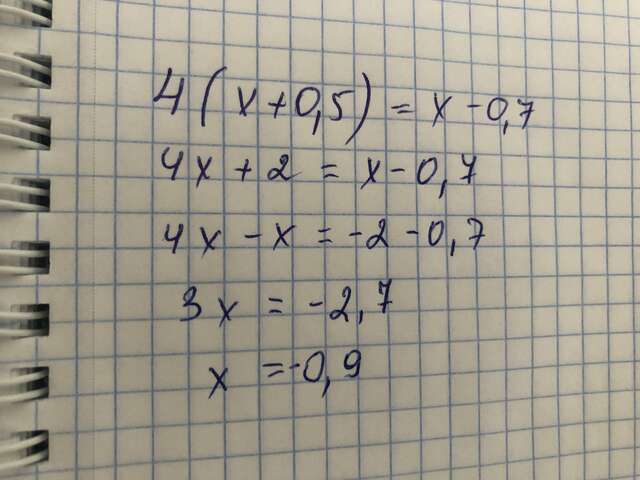 4(x+0,5)=x-0,7
4x+2=x-0,7
4x-x=-2-0,7
3x=-2,7
x=-0,9